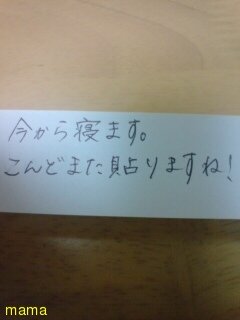 今から寝ます。
こんどまた貼りますね!
mama